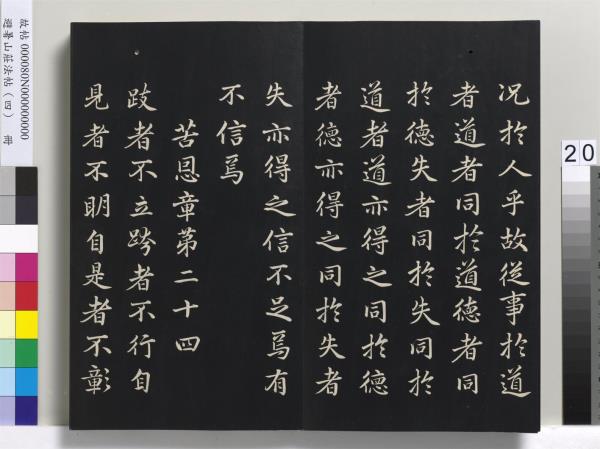 况於人乎故從事於道
者道者同於道德者同
於德失者同於失同於
道者道亦得之同於德
者德亦得之同於失者
失亦得之信不足焉有
不信焉
苦恩章第二十四
跂者不立跨者不行自
見者不明自是者不彰
故帖 000080N000000000
避暑山莊法帖(四) 冊
20